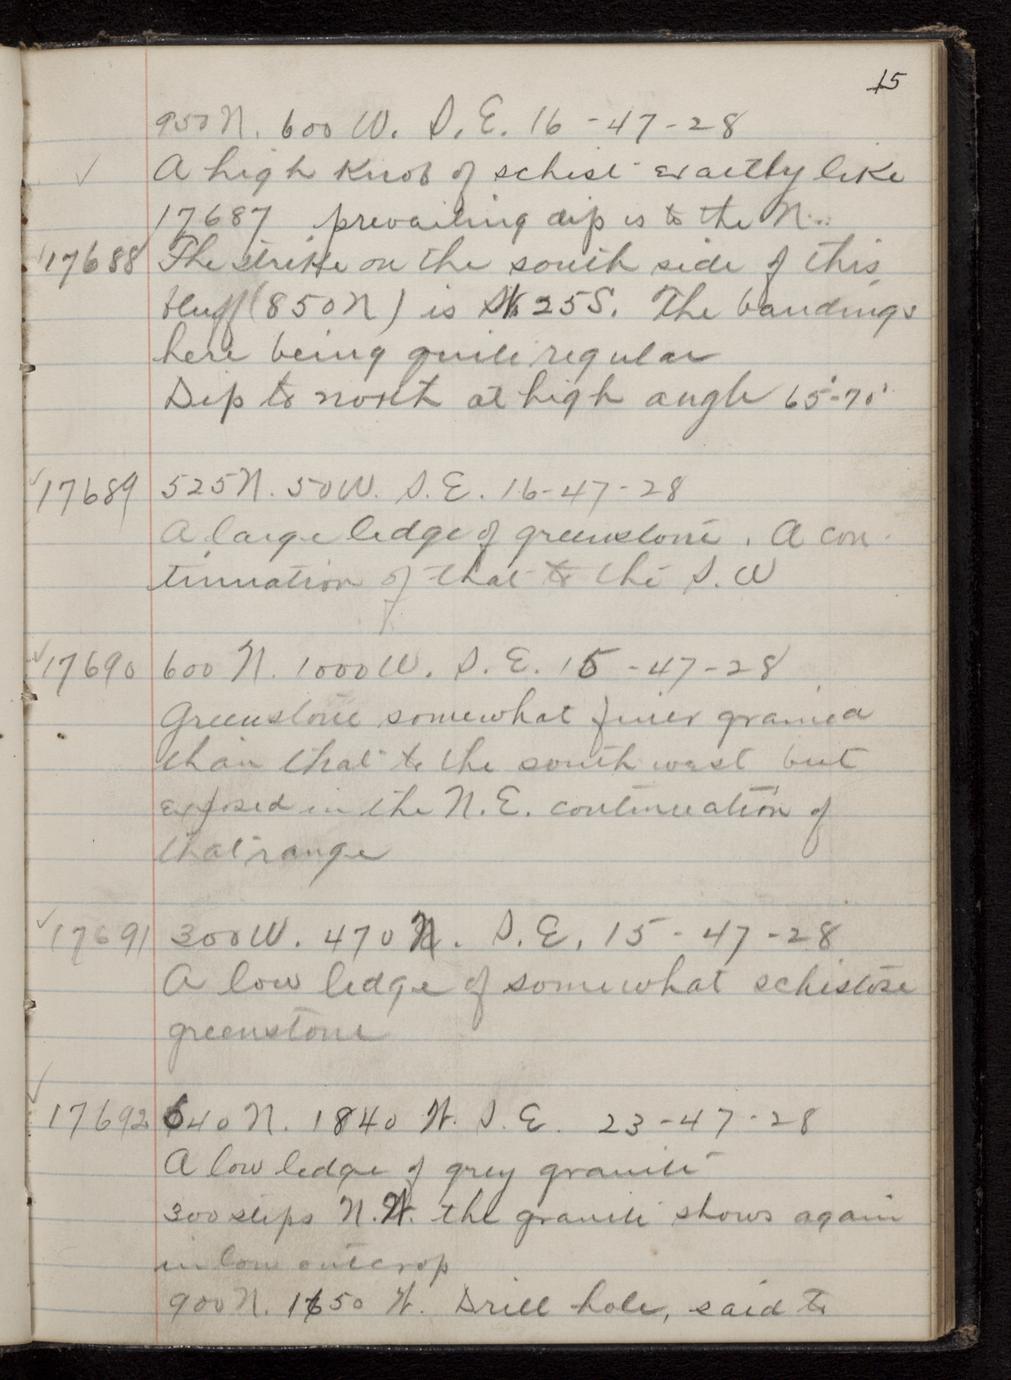 15
950 N. 600 W. S. E. 16-47-28
✓ A high knob of schist exactly like
17687 prevailing dip is to the N.
✓17688 The strike on the south side of this
bluff (850N) is 25S. The bandings
here being quite regular
Dip to north at high angle 65°-70°
✓17689 525N. 50W. S.E. 16-47-28
A large ledge of greenstone. A con-
tinuation of that to the S.W
✓17690 600 N. 1000W. S. E. 15-47-28
Greenstone somewhat finer grained
than that to the south west but
exposed in the N.E. continuation of
that range
✓17691 300W. 470 N. S.E. 15-47-28
A low ledge of somewhat schistose
greenstone
✓
17692 640 N. 1840 W. S.E. 23-47-28
A low ledge of grey granite
300 steps N.W. the granite shows again
in low outcrop
900 N. 1650 W. Drill hole, said to